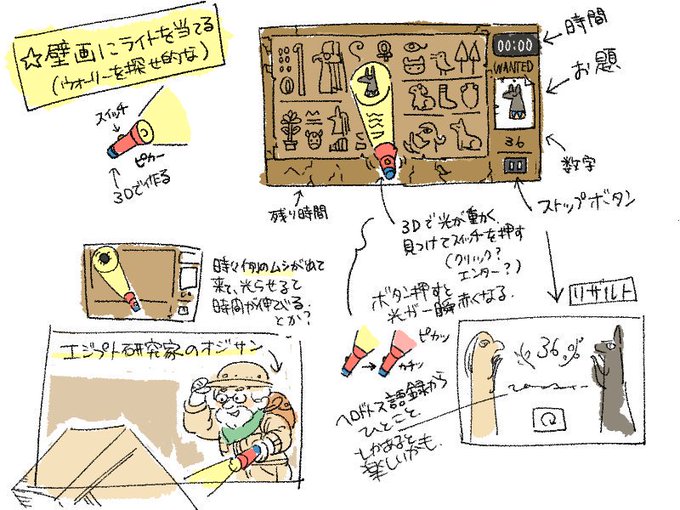 ☆壁画にライトを当てる
(ウォーリーを探せ的な)
スイッチ
ピカー
3Dで作る
00:00
WANTED
36
時間
お題
数字
ストップボタン
残り時間
3Dで光が動く.
見つけてスイッチを押す
(クリック?
エンター?)
ボタン押すと
光が一瞬赤くなる.
ピカッ
カチッ
時々例のムシが出て
来て、光らせると
時間が伸びる.
とか?
エジプト研究家のオジサン
リザルト
36.%
ヘロドトス語録から
ひとこと.
とかあると
楽しいかも.